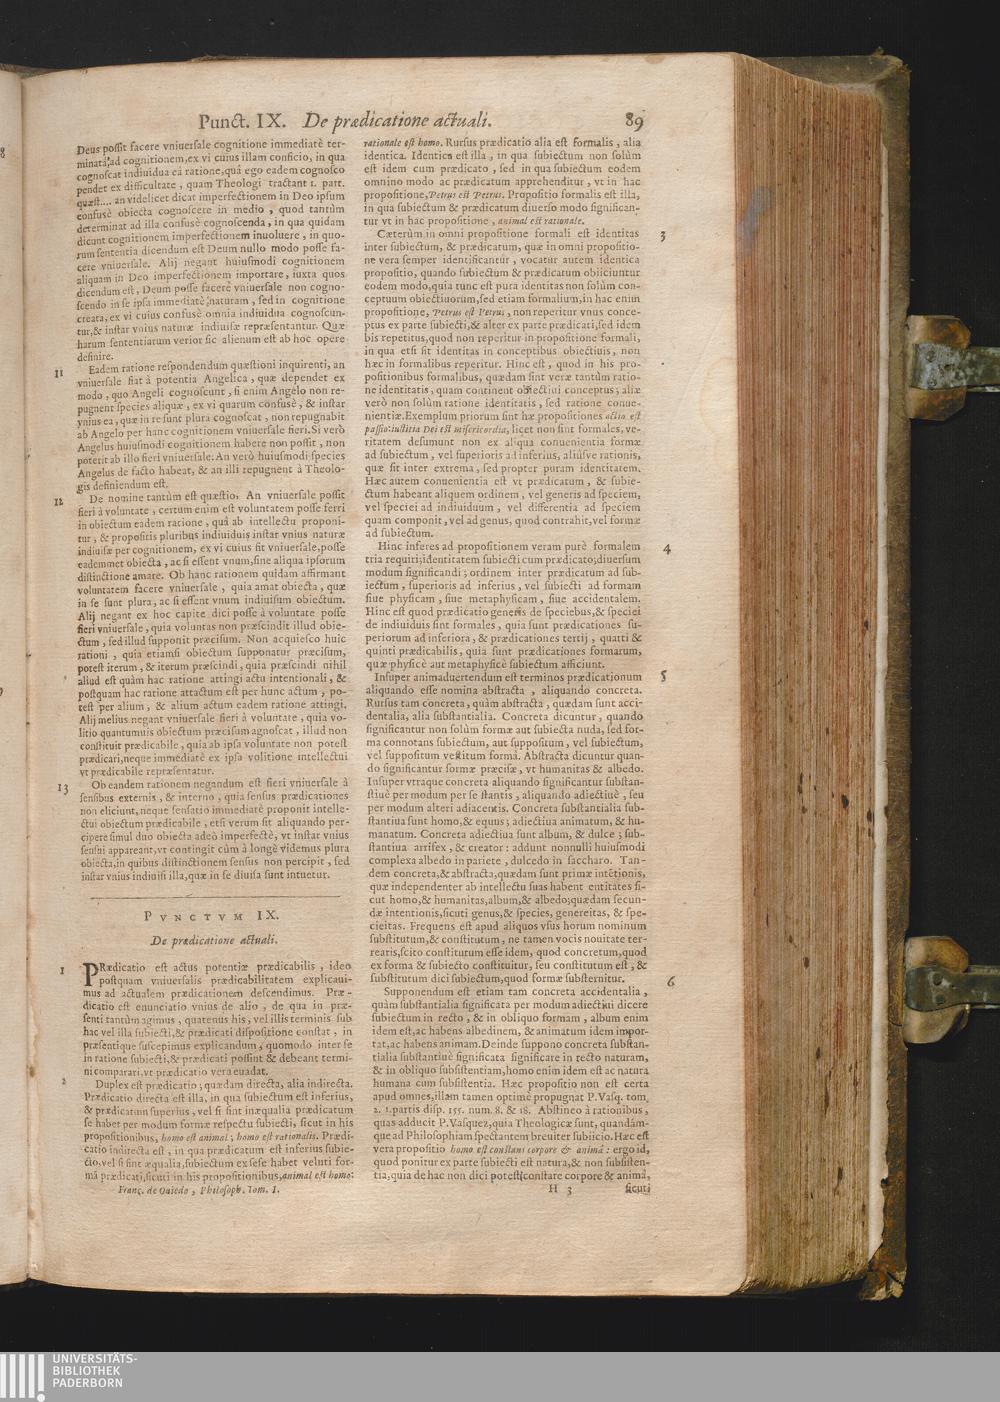 Punct. IX. De prædicatione actuali. 89
Deus possit facere vniuersale cognitione immediatè ter-
minatâ, ad cognitionem, ex vi cuius illam conficio, in qua
cognoscat indiuidua eâ ratione, quâ ego eadem cognosco
pendet ex difficultate, quam Theologi tractant 1. part.
quæst.... an videlicet dicat imperfectionem in Deo ipsum
confusè obiecta cognoscere in medio, quod tantùm
determinat ad illa confusè cognoscenda, in qua quidam
dicunt cognitionem imperfectionem inuoluere, in quo-
rum sententia dicendum est Deum nullo modo posse fa-
cere vniuersale. Alij negant huiusmodi cognitionem
aliquam in Deo imperfectionem importare, iuxta quos
dicendum est, Deum posse facere vniuersale non cogno-
scendo in se ipsa immediatè naturam, sed in cognitione
creata, ex vi cuius confusè omnia indiuidua cognoscun-
tur, & instar vnius naturæ indiuisæ repræsentantur. Quæ
harum sententiarum verior sit alienum est ab hoc opere
definire.
11 Eadem ratione respondendum quæstioni inquirenti, an
vniuersale fiat à potentia Angelica, quæ dependet ex
modo, quo Angeli cognoscunt, si enim Angelo non re-
pugnent species aliquæ, ex vi quarum confusè, & instar
vnius ea, quæ in re sunt plura cognoscat, non repugnabit
ab Angelo per hanc cognitionem vniuersale fieri. Si verò
Angelus huiusmodi cognitionem habere non possit, non
poterit ab illo fieri vniuersale: An verò huiusmodi species
Angelus de facto habeat, & an illi repugnent à Theolo-
gis definiendum est.
12 De nomine tantùm est quæstio: An vniuersale possit
fieri à voluntate, certum enim est voluntatem posse ferri
in obiectum eadem ratione, quâ ab intellectu proponi-
tur, & propositis pluribus indiuiduis instar vnius naturæ
indiuisæ per cognitionem, ex vi cuius fit vniuersale, posse
eademmet obiecta, ac si essent vnum, sine aliqua ipsorum
distinctione amare. Ob hanc rationem quidam affirmant
voluntatem facere vniuersale, quia amat obiecta, quæ
in se sunt plura, ac si essent vnum indiuisum obiectum.
Alij negant ex hoc capite dici posse à voluntate posse
fieri vniuersale, quia voluntas non præscindit illud obie-
ctum, sed illud supponit præcisum. Non acquiesco huic
rationi, quia etiamsi obiectum supponatur præcisum,
potest iterum, & iterum præscindi, quia præscindi nihil
aliud est quàm hac ratione attingi actu intentionali, &
postquam hac ratione attactum est per hunc actum, po-
test per alium, & alium actum eadem ratione attingi.
Alij melius negant vniuersale fieri à voluntate, quia vo-
litio quantumuis obiectum præcisum agnoscat, illud non
constituit prædicabile, quia ab ipsa voluntate non potest
prædicari, neque immediatè ex ipsa volitione intellectui
vt prædicabile repræsentatur.
13 Ob eandem rationem negandum est fieri vniuersale à
sensibus externis, & interno, quia sensus prædicationes
non eliciunt, neque sensatio immediatè proponit intelle-
ctui obiectum prædicabile, etsi verum sit aliquando per-
cipere simul duo obiecta adeò imperfectè, vt instar vnius
sensui appareant, vt contingit cùm à longè videmus plura
obiecta, in quibus distinctionem sensus non percipit, sed
instar vnius indiuisi illa, quæ in se diuisa sunt intuetur.
PVNCTVM IX.
De prædicatione actuali.
1 PRædicatio est actus potentiæ prædicabilis, ideo
postquam vniuersalis prædicabilitatem explicaui-
mus ad actualem prædicationem descendimus. Præ-
dicatio est enunciatio vnius de alio, de qua in præ-
senti tantùm agimus, quatenus his, vel illis terminis sub
hac vel illa subiecti, & prædicati dispositione constat, in
præsentique suscipimus explicandum, quomodo inter se
in ratione subiecti, & prædicati possint & debeant termi-
ni comparari, vt prædicatio vera euadat.
2 Duplex est prædicatio; quædam directa, alia indirecta.
Prædicatio directa est illa, in qua subiectum est inferius,
& prædicatum superius, vel si sint inæqualia prædicatum
se habet per modum formæ respectu subiecti, sicut in his
propositionibus, homo est animal; homo est rationalis. Prædi-
catio indirecta est, in qua prædicatum est inferius subie-
cto, vel si sint æqualia, subiectum ex sese habet veluti for-
mâ prædicati, sicuti in his propositionibus, animal est homo:
Franç. de Ouiedo, Philosoph. Tom. I.
rationale est homo. Rursus prædicatio alia est formalis, alia
identica. Identica est illa, in qua subiectum non solùm
est idem cum prædicato, sed in qua subiectum eodem
omnino modo ac prædicatum apprehenditur, vt in hac
propositione, Petrus est Petrus. Propositio formalis est illa,
in qua subiectum & prædicatum diuerso modo significan-
tur vt in hac propositione, animal est rationale.
3 Cæterùm in omni propositione formali est identitas
inter subiectum, & prædicatum, quæ in omni propositio-
ne vera semper identificantur, vocatur autem identica
propositio, quando subiectum & prædicatum obiiciuntur
eodem modo, quia tunc est pura identitas non solùm con-
ceptuum obiectiuorum, sed etiam formalium, in hac enim
propositione, Petrus est Petrus, non reperitur vnus conce-
ptus ex parte subiecti, & alter ex parte prædicati, sed idem
bis repetitus, quod non reperitur in propositione formali,
in qua etsi sit identitas in conceptibus obiectiuis, non
hæc in formalibus reperitur. Hinc est, quod in his pro-
positionibus formalibus, quædam sint veræ tantùm ratio-
ne identitatis, quam continent obiectiui conceptus; aliæ
verò non solùm ratione identitatis, sed ratione conue-
nientiæ. Exemplum priorum sint hæ propositiones actio est
passio: iustitia Dei est misericordia, licet non sint formales, ve-
ritatem desumunt non ex aliqua conuenientia formæ
ad subiectum, vel superioris ad inferius, aliúsve rationis,
quæ sit inter extrema, sed propter puram identitatem.
Hæc autem conuenientia est vt prædicatum, & subie-
ctum habeant aliquem ordinem, vel generis ad speciem,
vel speciei ad indiuiduum, vel differentia ad speciem
quam componit, vel ad genus, quod contrahit, vel formæ
ad subiectum.
4 Hinc inferes ad propositionem veram purè formalem
tria requiri; identitatem subiecti cum prædicato; diuersum
modum significandi; ordinem inter prædicatum ad sub-
iectum, superioris ad inferius, vel subiecti ad formam
siue physicam, siue metaphysicam, siue accidentalem.
Hinc est quod prædicatio generis de speciebus, & speciei
de indiuiduis sint formales, quia sunt prædicationes su-
periorum ad inferiora, & prædicationes tertij, quarti &
quinti prædicabilis, quia sunt prædicationes formarum,
quæ physicè aut metaphysicè subiectum afficiunt.
5 Insuper animaduertendum est terminos prædicationum
aliquando esse nomina abstracta, aliquando concreta.
Rursus tam concreta, quàm abstracta, quædam sunt acci-
dentalia, alia substantialia. Concreta dicuntur, quando
significantur non solùm formæ aut subiecta nuda, sed for-
ma connotans subiectum, aut suppositum, vel subiectum,
vel suppositum vestitum formâ. Abstracta dicuntur quan-
do significantur formæ præcisæ, vt humanitas & albedo.
Insuper vtraque concreta aliquando significantur substan-
tiuè per modum per se stantis, aliquando adiectiuè, seu
per modum alteri adiacentis. Concreta substantialia sub-
stantiua sunt homo, & equus; adiectiua animatum, & hu-
manatum. Concreta adiectiua sunt album, & dulce; sub-
stantiua artifex, & creator: addunt nonnulli huiusmodi
complexa albedo in pariete, dulcedo in saccharo. Tan-
dem concreta, & abstracta, quædam sunt primæ intẽtionis,
quæ independenter ab intellectu suas habent entitates si-
cut homo, & humanitas, album, & albedo; quædam secun-
dæ intentionis, sicuti genus, & species, genereitas, & spe-
cieitas. Frequens est apud aliquos vsus horum nominum
substitutum, & constitutum, ne tamen vocis nouitate ter-
rearis, scito constitutum esse idem, quod concretum, quod
ex forma & subiecto constituitur, seu constitutum est, &
substitutum dici subiectum, quod formæ substernitur.
6 Supponendum est etiam tam concreta accidentalia,
quàm substantialia significata per modum adiectiui dicere
subiectum in recto, & in obliquo formam, album enim
idem est, ac habens albedinem, & animatum idem impor-
tat, ac habens animam. Deinde suppono concreta substan-
tialia substantiuè significata significare in recto naturam,
& in obliquo subsistentiam, homo enim idem est ac natura
humana cum subsistentia. Hæc propositio non est certa
apud omnes, illam tamen optimè propugnat P. Vasq. tom.
2. 1. partis disp. 155. num. 8. & 18. Abstineo à rationibus,
quas adducit P. Vasquez, quia Theologicæ sunt, quandam-
que ad Philosophiam spectantem breuiter subiicio. Hæc est
vera propositio homo est constans corpore & animâ: ergo id,
quod ponitur ex parte subiecti est natura, & non subsisten-
tia, quia de hac non dici potest constare corpore & animâ,
H 3 sicuti
UNIVERSITÄTS-
BIBLIOTHEK
PADERBORN